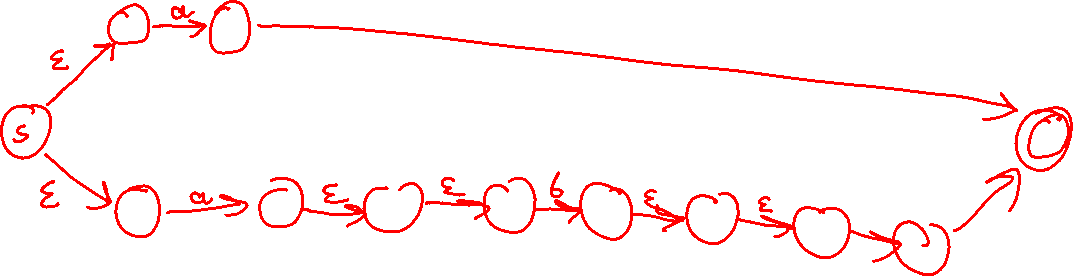 a
ε
S
ε
a
ε
ε
b
ε
ε